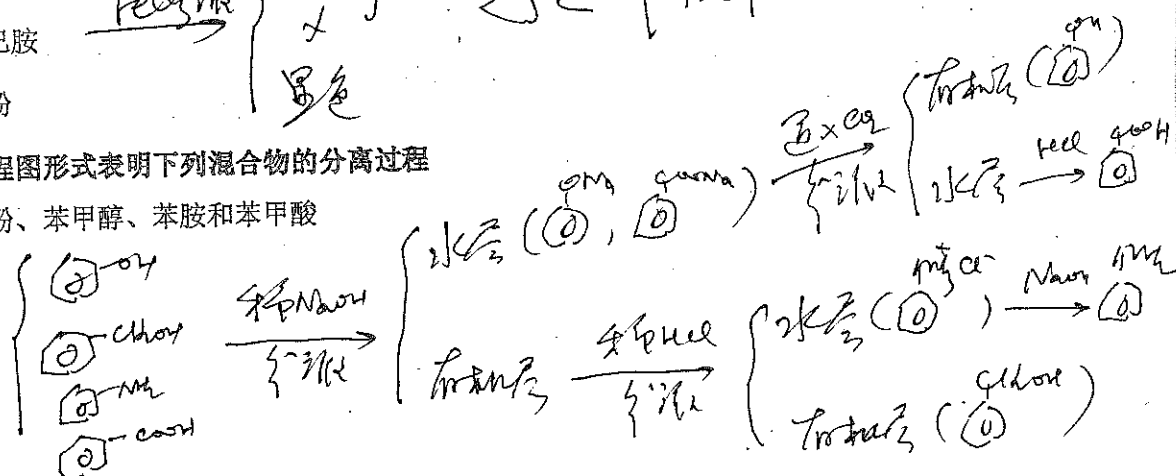 己胺
显色
程图形式表明下列混合物的分离过程
、苯甲醇、苯胺和苯甲酸
OH
CH₂OH
NH₂
COOH
稀NaOH
分液
水层 (ONa, COONa)
通入CO₂
分液
有机层 (OH)
水层 HCl COOH
有机层
稀HCl
分液
水层 (NH₃⁺Cl⁻) NaOH NH₂
有机层 (CH₂OH)